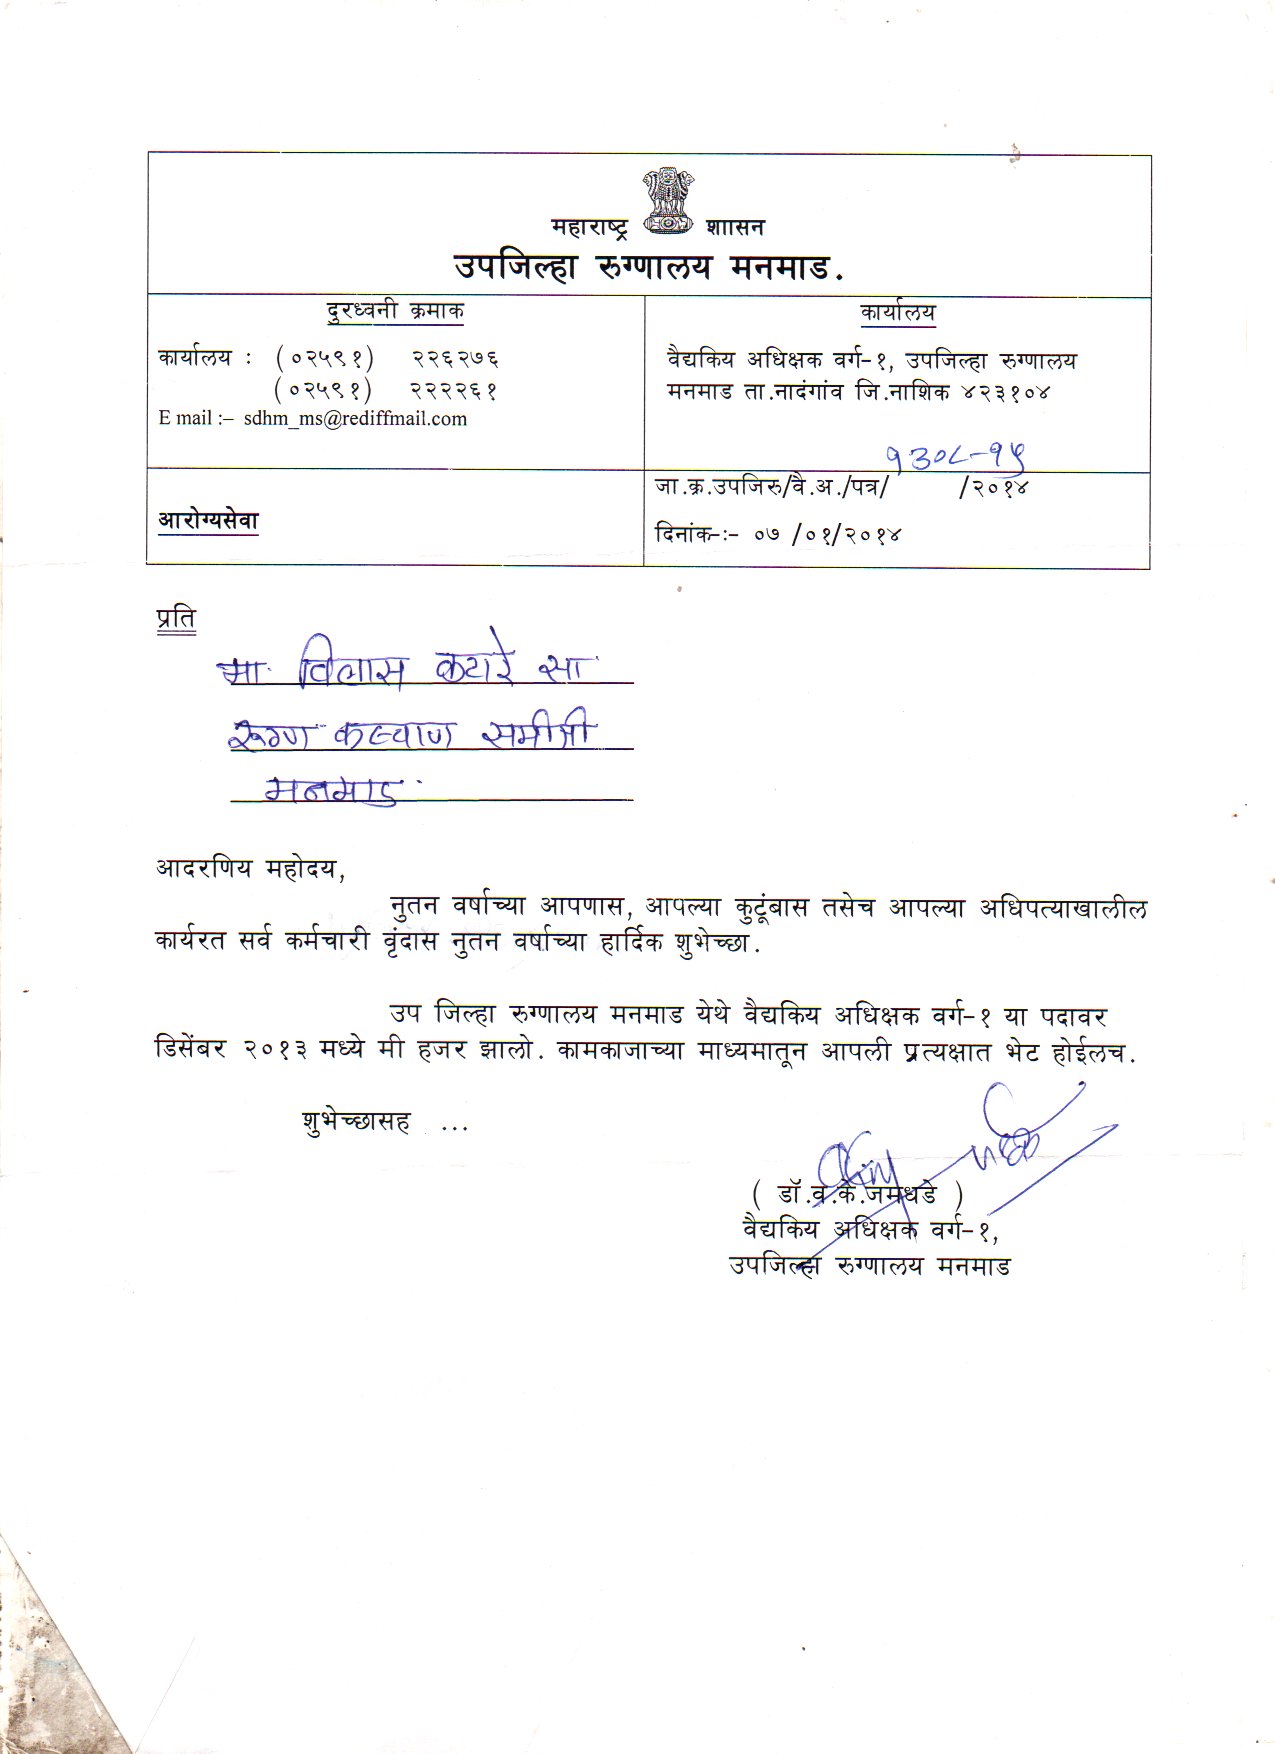 महाराष्ट्र शाासन
उपजिल्हा रुग्णालय मनमाड.
दुरध्वनी क्रमाक
कार्यालय : (०२५९१) २२६२७६
(०२५९१) २२२२६१
E mail :– sdhm_ms@rediffmail.com
कार्यालय
वैद्यकिय अधिक्षक वर्ग-१, उपजिल्हा रुग्णालय
मनमाड ता.नादंगांव जि.नाशिक ४२३१०४
आरोग्यसेवा
१३०८-१५
जा.क्र.उपजिरु/वै.अ./पत्र/ /२०१४
दिनांक-:- ०७ /०१/२०१४
प्रति
मा. विलास कटारे सा.
रूग्ण कल्याण समीती
मनमाड.
आदरणिय महोदय,
नुतन वर्षाच्या आपणास, आपल्या कुटूंबास तसेच आपल्या अधिपत्याखालील
कार्यरत सर्व कर्मचारी वृंदास नुतन वर्षाच्या हार्दिक शुभेच्छा.
उप जिल्हा रुग्णालय मनमाड येथे वैद्यकिय अधिक्षक वर्ग-१ या पदावर
डिसेंबर २०१३ मध्ये मी हजर झालो. कामकाजाच्या माध्यमातून आपली प्रत्यक्षात भेट होईलच.
शुभेच्छासह ...
( डॉ.व.के.जमधडे )
वैद्यकिय अधिक्षक वर्ग-१,
उपजिल्हा रुग्णालय मनमाड